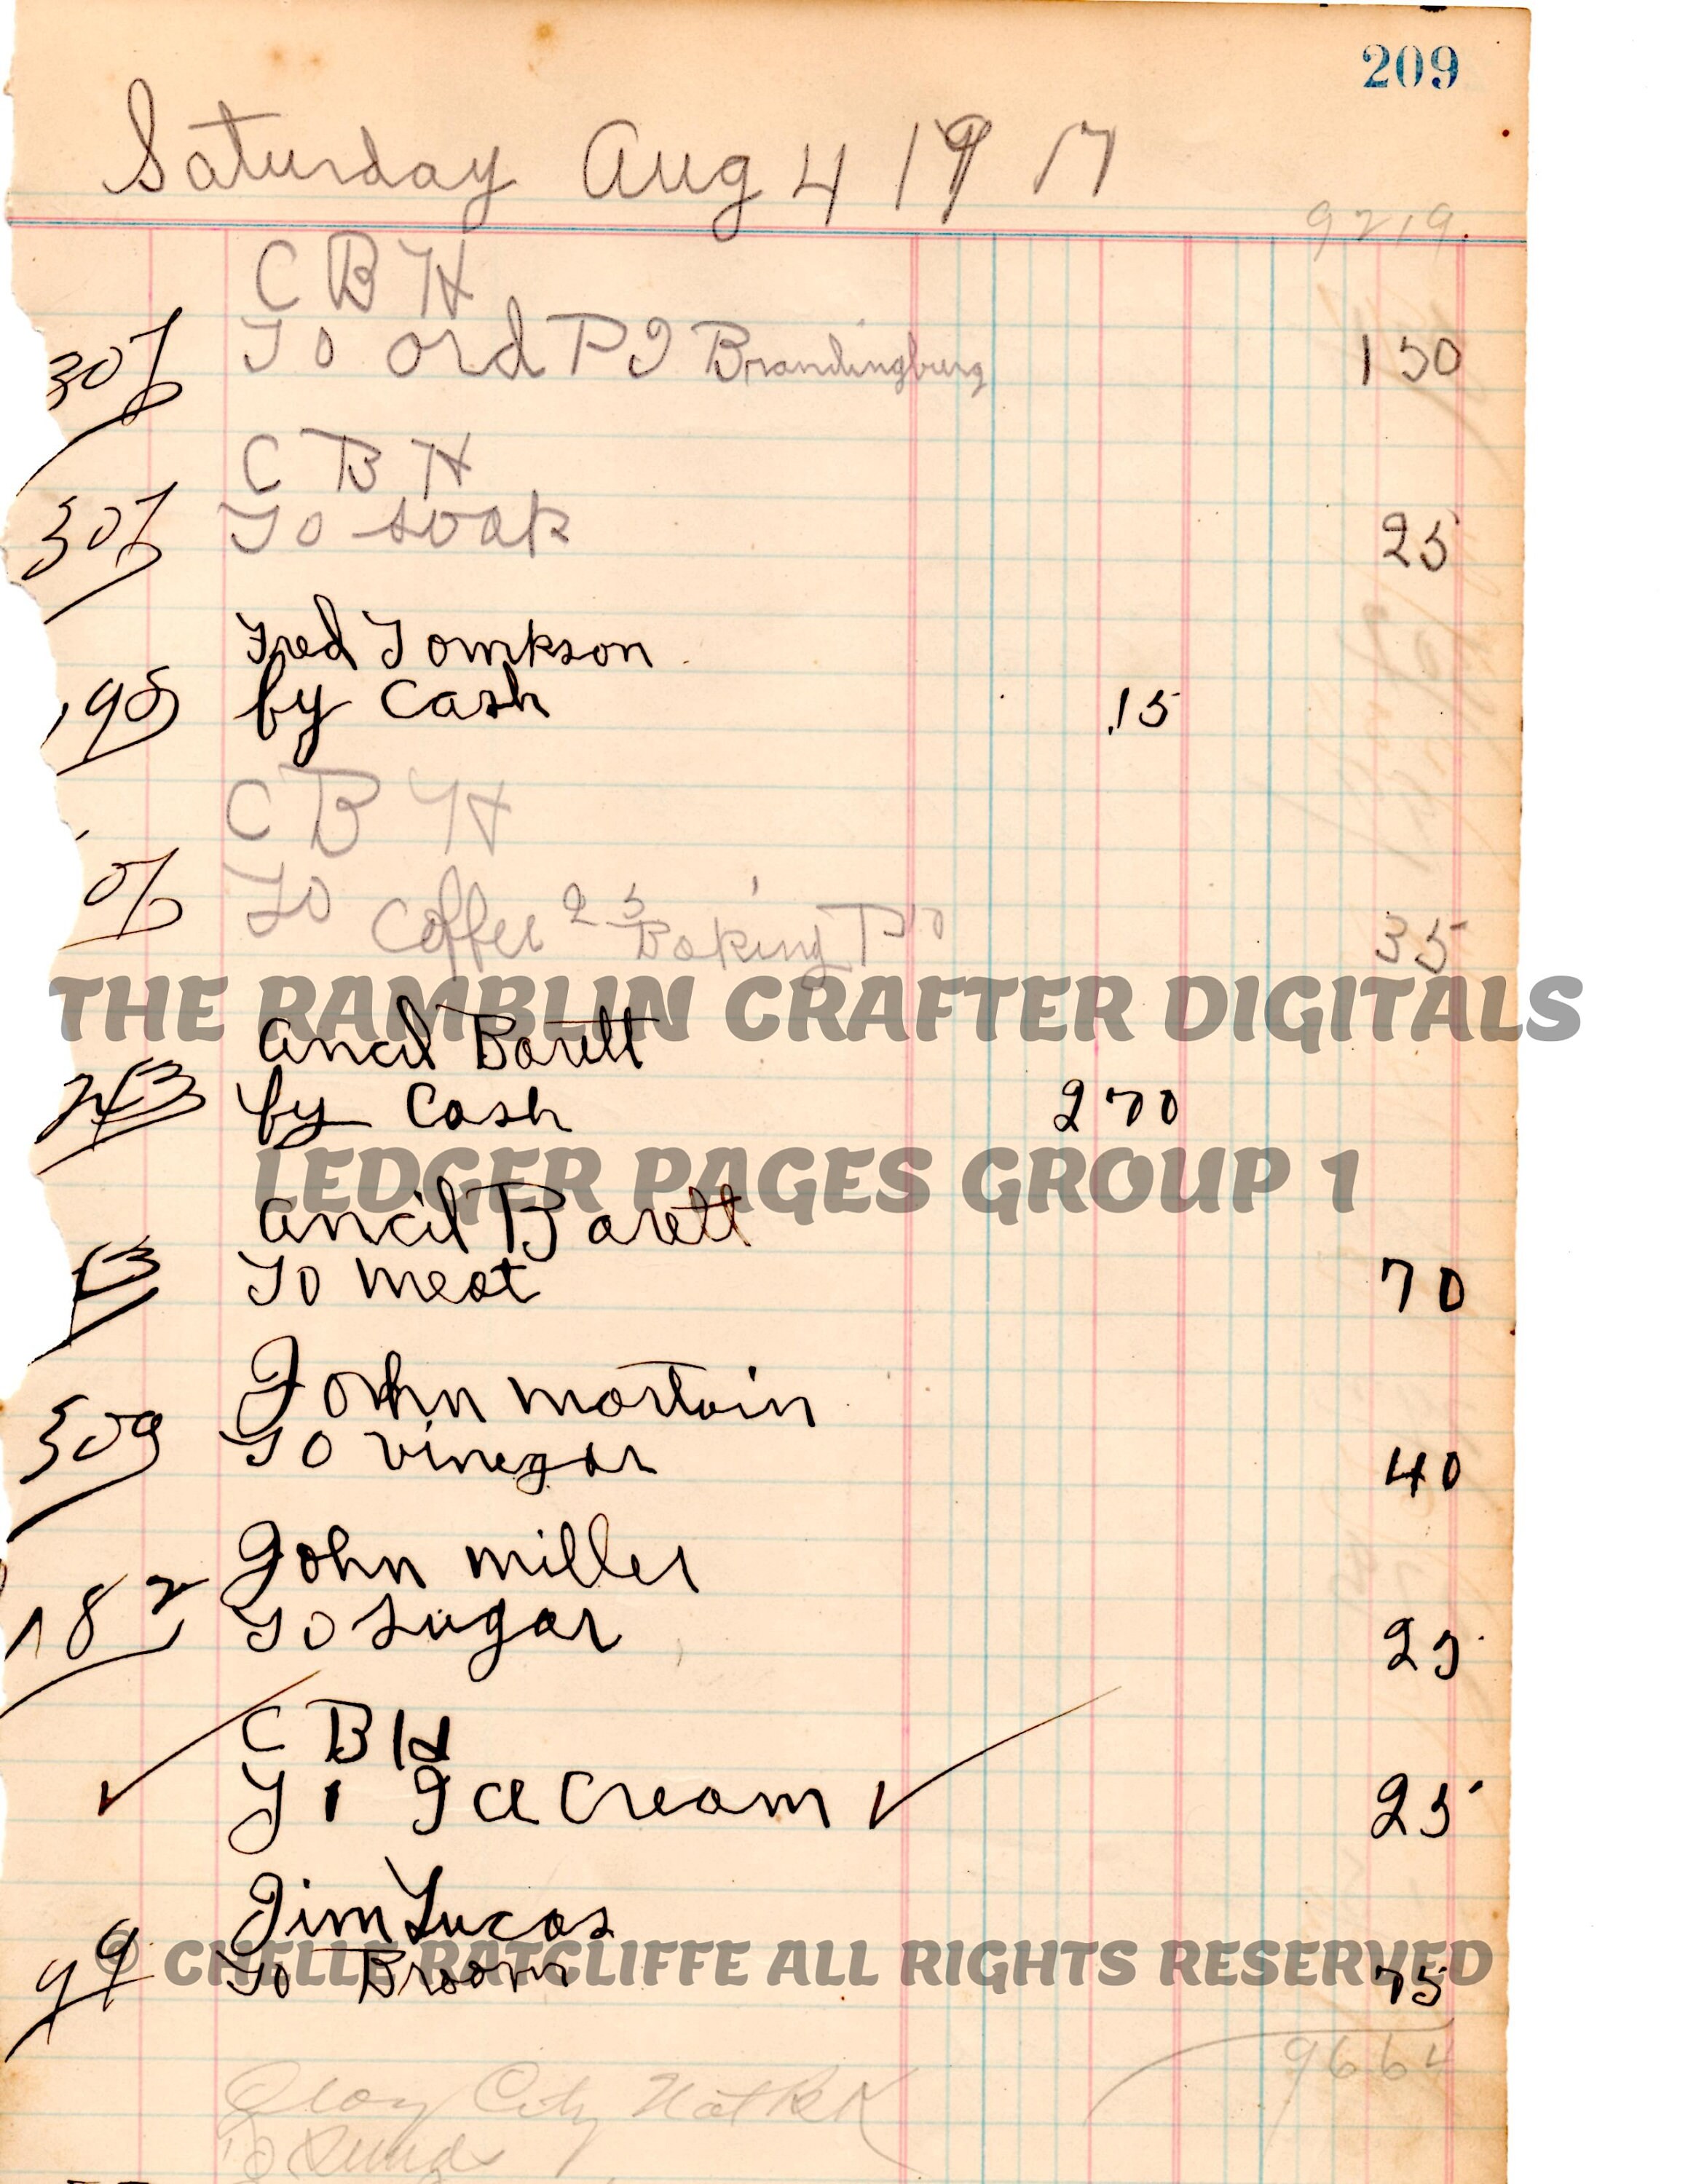 209
Saturday Aug 4 1917
9219
C B H
To ord P J Brandingburg 150
307
C B H
307 To soap 25
Fred Tomkson
195 by Cash .15
C B H
To Coffee 25 Baking P 10 35
THE RAMBLIN CRAFTER DIGITALS
Ancil Barett
by Cash 270
LEDGER PAGES GROUP 1
Ancil Barett
To Meat 70
John Martain
309 To Vinegar 40
John Miller
182 To Sugar 25
C B H
Ice Cream 25
Jim Lucas
99 To Broom 75
© CHELLE RATCLIFFE ALL RIGHTS RESERVED
9664
Clay City Nat Bk
To Sund